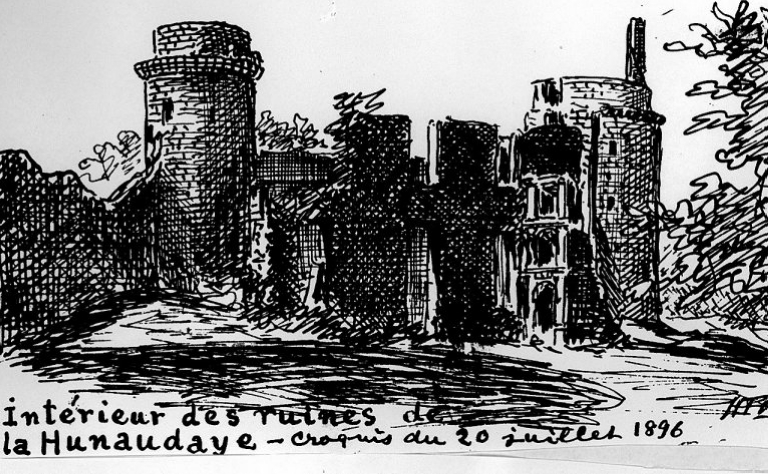 Intérieur des ruines de
la Hunaudaye - croquis du 20 juillet 1896